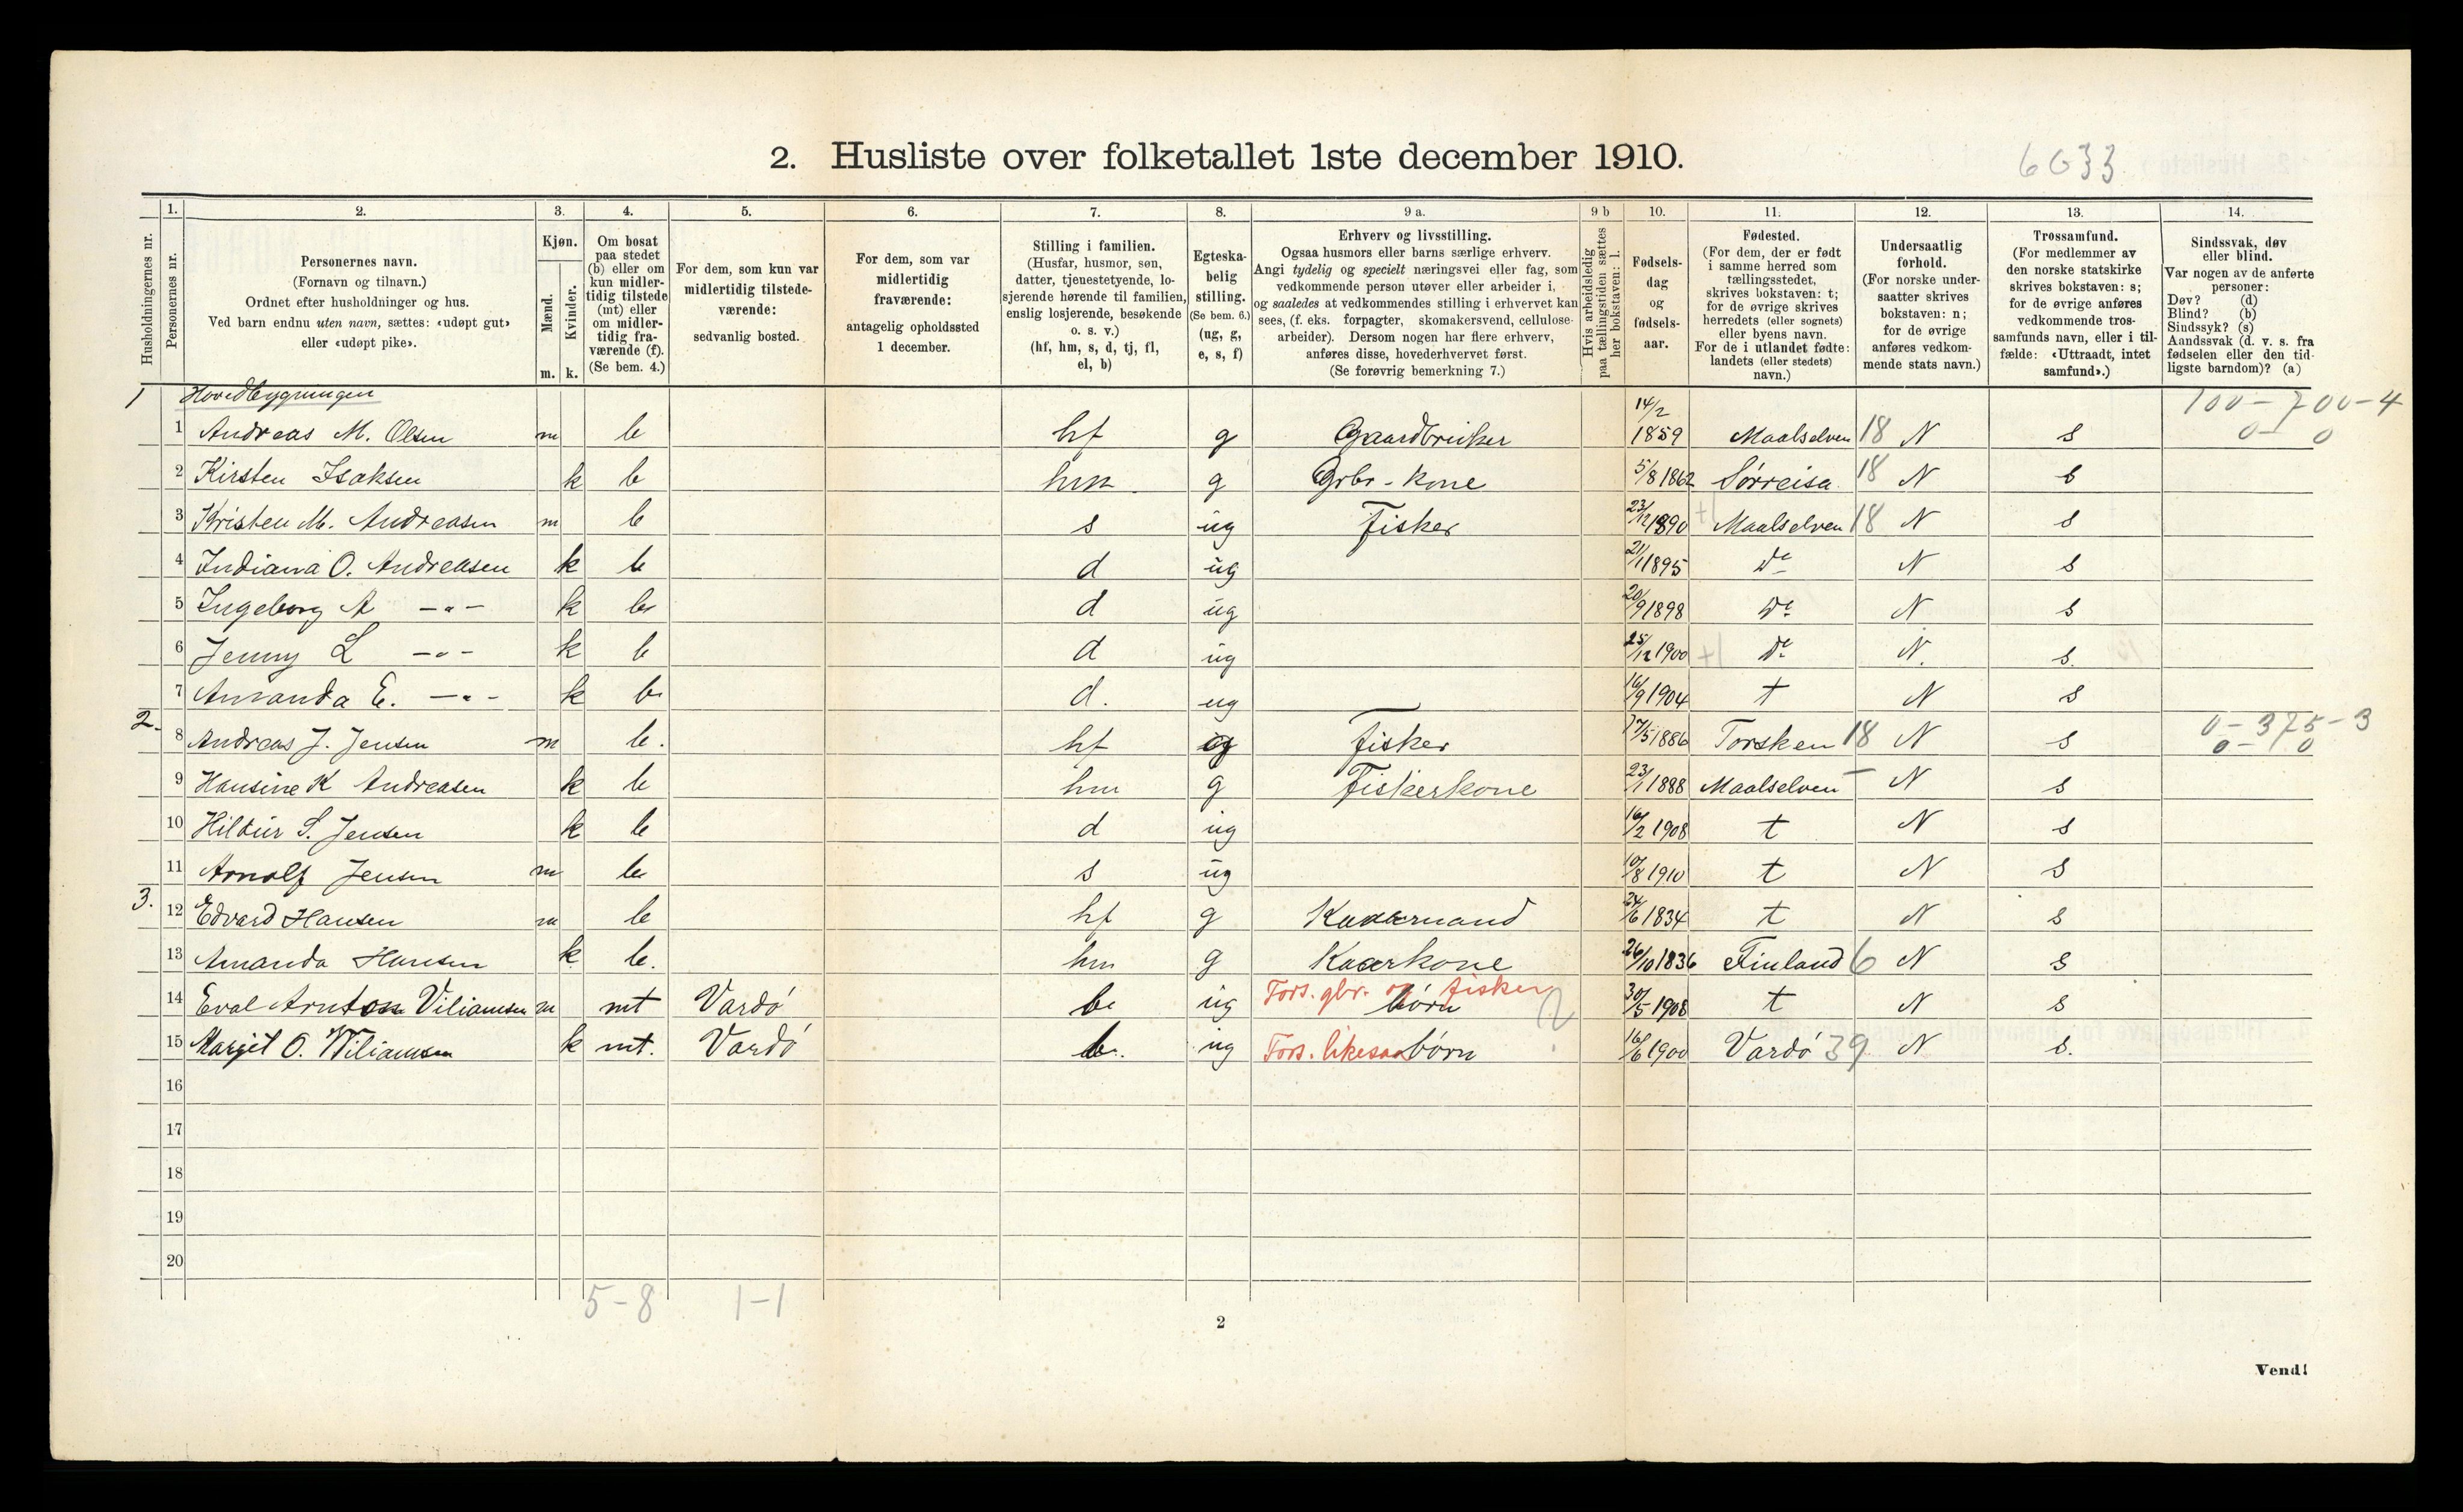 2. Husliste over folketallet 1ste december 1910.
6633
1. 2. 3. 4. 5. 6. 7. 8. 9 a. 9 b 10. 11. 12. 13. 14.
Husholdningernes nr.
Personernes nr.
Personernes navn.
(Fornavn og tilnavn.)
Ordnet efter husholdninger og hus.
Ved barn endnu uten navn, sættes: «udøpt gut»
eller «udøpt pike».
Kjøn.
Mænd.
Kvinder.
m. k.
Om bosat
paa stedet
(b) eller om
kun midler-
tidig tilstede
(mt) eller
om midler-
tidig fra-
værende (f).
(Se bem. 4.)
For dem, som kun var
midlertidig tilstede-
værende:
sedvanlig bosted.
For dem, som var
midlertidig
fraværende:
antagelig opholdssted
1 december.
Stilling i familien.
(Husfar, husmor, søn,
datter, tjenestetyende, lo-
sjerende hørende til familien,
enslig losjerende, besøkende
o. s. v.)
(hf, hm, s, d, tj, fl,
el, b)
Egteska-
belig
stilling.
(Se bem. 6.)
(ug, g,
e, s, f)
Erhverv og livsstilling.
Ogsaa husmors eller barns særlige erhverv.
Angi tydelig og specielt næringsvei eller fag, som
vedkommende person utøver eller arbeider i,
og saaledes at vedkommendes stilling i erhvervet kan
sees, (f. eks. forpagter, skomakersvend, cellulose-
arbeider). Dersom nogen har flere erhverv,
anføres disse, hovederhvervet først.
(Se forøvrig bemerkning 7.)
Hvis arbeidsledig
paa tællingstiden sættes
her bokstaven: l.
Fødsels-
dag
og
fødsels-
aar.
Fødested.
(For dem, der er født
i samme herred som
tællingsstedet,
skrives bokstaven: t;
for de øvrige skrives
herredets (eller sognets)
eller byens navn.
For de i utlandet fødte:
landets (eller stedets)
navn.)
Undersaatlig
forhold.
(For norske under-
saatter skrives
bokstaven: n;
for de øvrige
anføres vedkom-
mende stats navn.)
Trossamfund.
(For medlemmer av
den norske statskirke
skrives bokstaven: s;
for de øvrige anføres
vedkommende tros-
samfunds navn, eller i til-
fælde: «Uttraadt, intet
samfund».)
Sindssvak, døv
eller blind.
Var nogen av de anførte
personer:
Døv? (d)
Blind? (b)
Sindssyk? (s)
Aandssvak (d. v. s. fra
fødselen eller den tid-
ligste barndom)? (a)
1 Hovedbygningen 100 - 700 - 4
1 Andreas M. Olsen m b hf g Gaardbruker 14/2 1859 Maalselven 18 N s 0 - 0
2 Kirsten Isaksen k b hm g Grbr - kone 5/8 1862 Sørreisa 18 N s
3 Kristen M. Andreasen m b s ug Fisker 23/12 1890 Maalselven 18 N s
4 Indiana O. Andreasen k b d ug 21/1 1895 do N s
5 Ingeborg A —"— k b d ug 20/9 1898 do N s
6 Jenny L —"— k b d ug 25/12 1900 +1 do N. s.
7 Amanda E. —"— k b d. ug 16/9 1904 t N s
2. 8 Andreas J. Jensen m b. hf g Fisker 17/5 1886 Torsken 18 N s 0 - 375 - 3
0 - 0
9 Hansine K Andreasen k b hm g Fiskerkone 23/1 1888 Maalselven - N s
10 Hildur S. Jensen k b d ug 16/2 1908 t N s
11 Arnolf Jensen m b s ug 10/8 1910 t N s
3. 12 Edvard Hansen m b hf g Kaarmand 24/6 1834 t N s
13 Amanda Hansen k b. hm g Kaarkone 26/10 1836 Finland 6 N s
14 Eval Arntson Viliamsen m mt Vardø b ug Fors. gbr. og fisker børn ? 30/5 1908 t N s
15 Margit O. Wiliamsen k mt. Vardø b. ug Fors. likesaa børn 16/6 1900 Vardø 39 N s.
16
17
18
19
20
5 - 8 1 - 1
2
Vend!